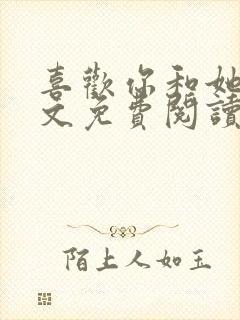 喜歡你和她
文免費閱讀
陌上人如玉